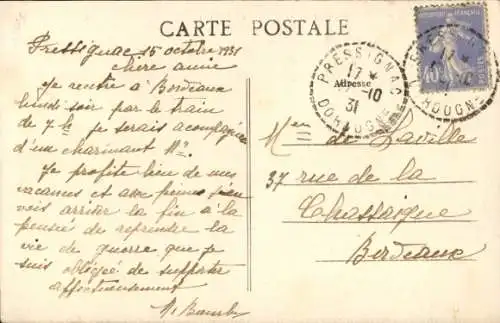 CARTE POSTALE
Pressignac 15 octobre 1931
chère amie
Je rentre à Bordeaux
lundi soir par le train
de 7 h je serais acompagnée
d'un charmant Mr.
Je profite bien de mes
vacances et avec peine j'en
vois arriver la fin à la
pensée de reprendre la
vie de guerre que je
suis obligée de supporter
affectueusement
Adresse
PRESSIGNAC
17 *
10
31
DORDOGNE
40c
POSTES
de Laville
37 rue de la
Chassaigne
Bordeaux